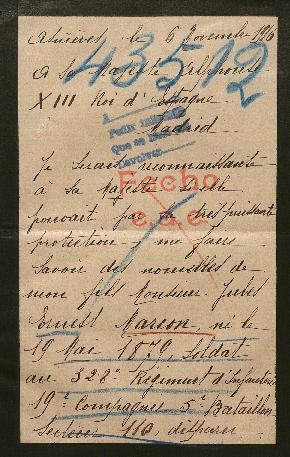 Asnières, le 6 Novembre 1916
43512
A Sa Majesté Alphonse
XIII Roi d'Espagne
Madrid
Pedir
Que se
Devolver
Je serais reconnaissante
à Sa Majesté si elle
Fecho
pouvait par sa très puissante
protection me faire
savoir des nouvelles de
mon fils Monsieur Jules
Ernest Marion, né le
19 Mai 1879 Soldat
au 328e Régiment d'Infanterie
19e Compagnie 5e Bataillon
Secteur 110, disparu